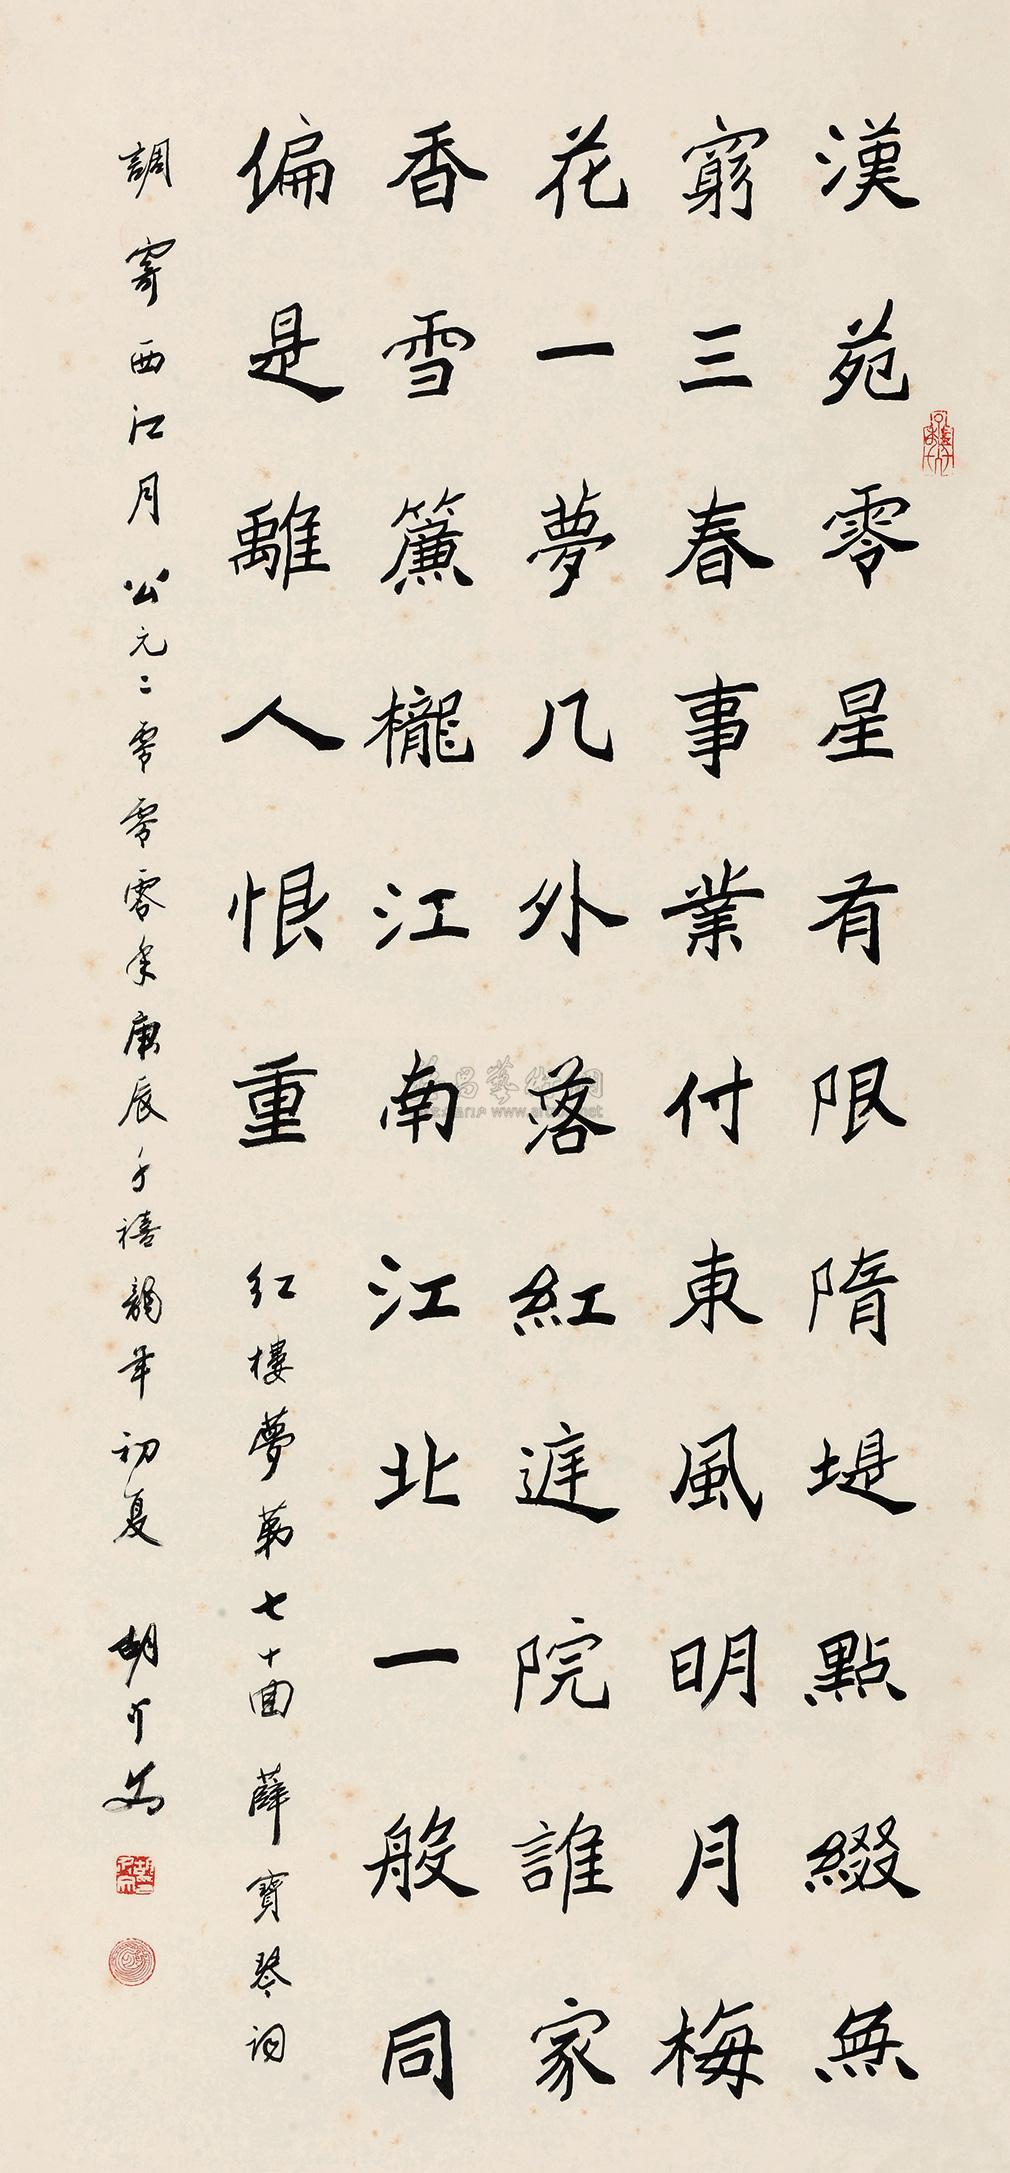 漢苑零星有限隋堤點綴無
窮三春事業付東風明月梅
花一夢几外落紅遅院誰家
香雪簾櫳江南江北一般同
偏是離人恨重
红樓夢第七十回薛寶琴词
調寄西江月公元二零零零年庚辰千禧龍年初夏
www.artron.net